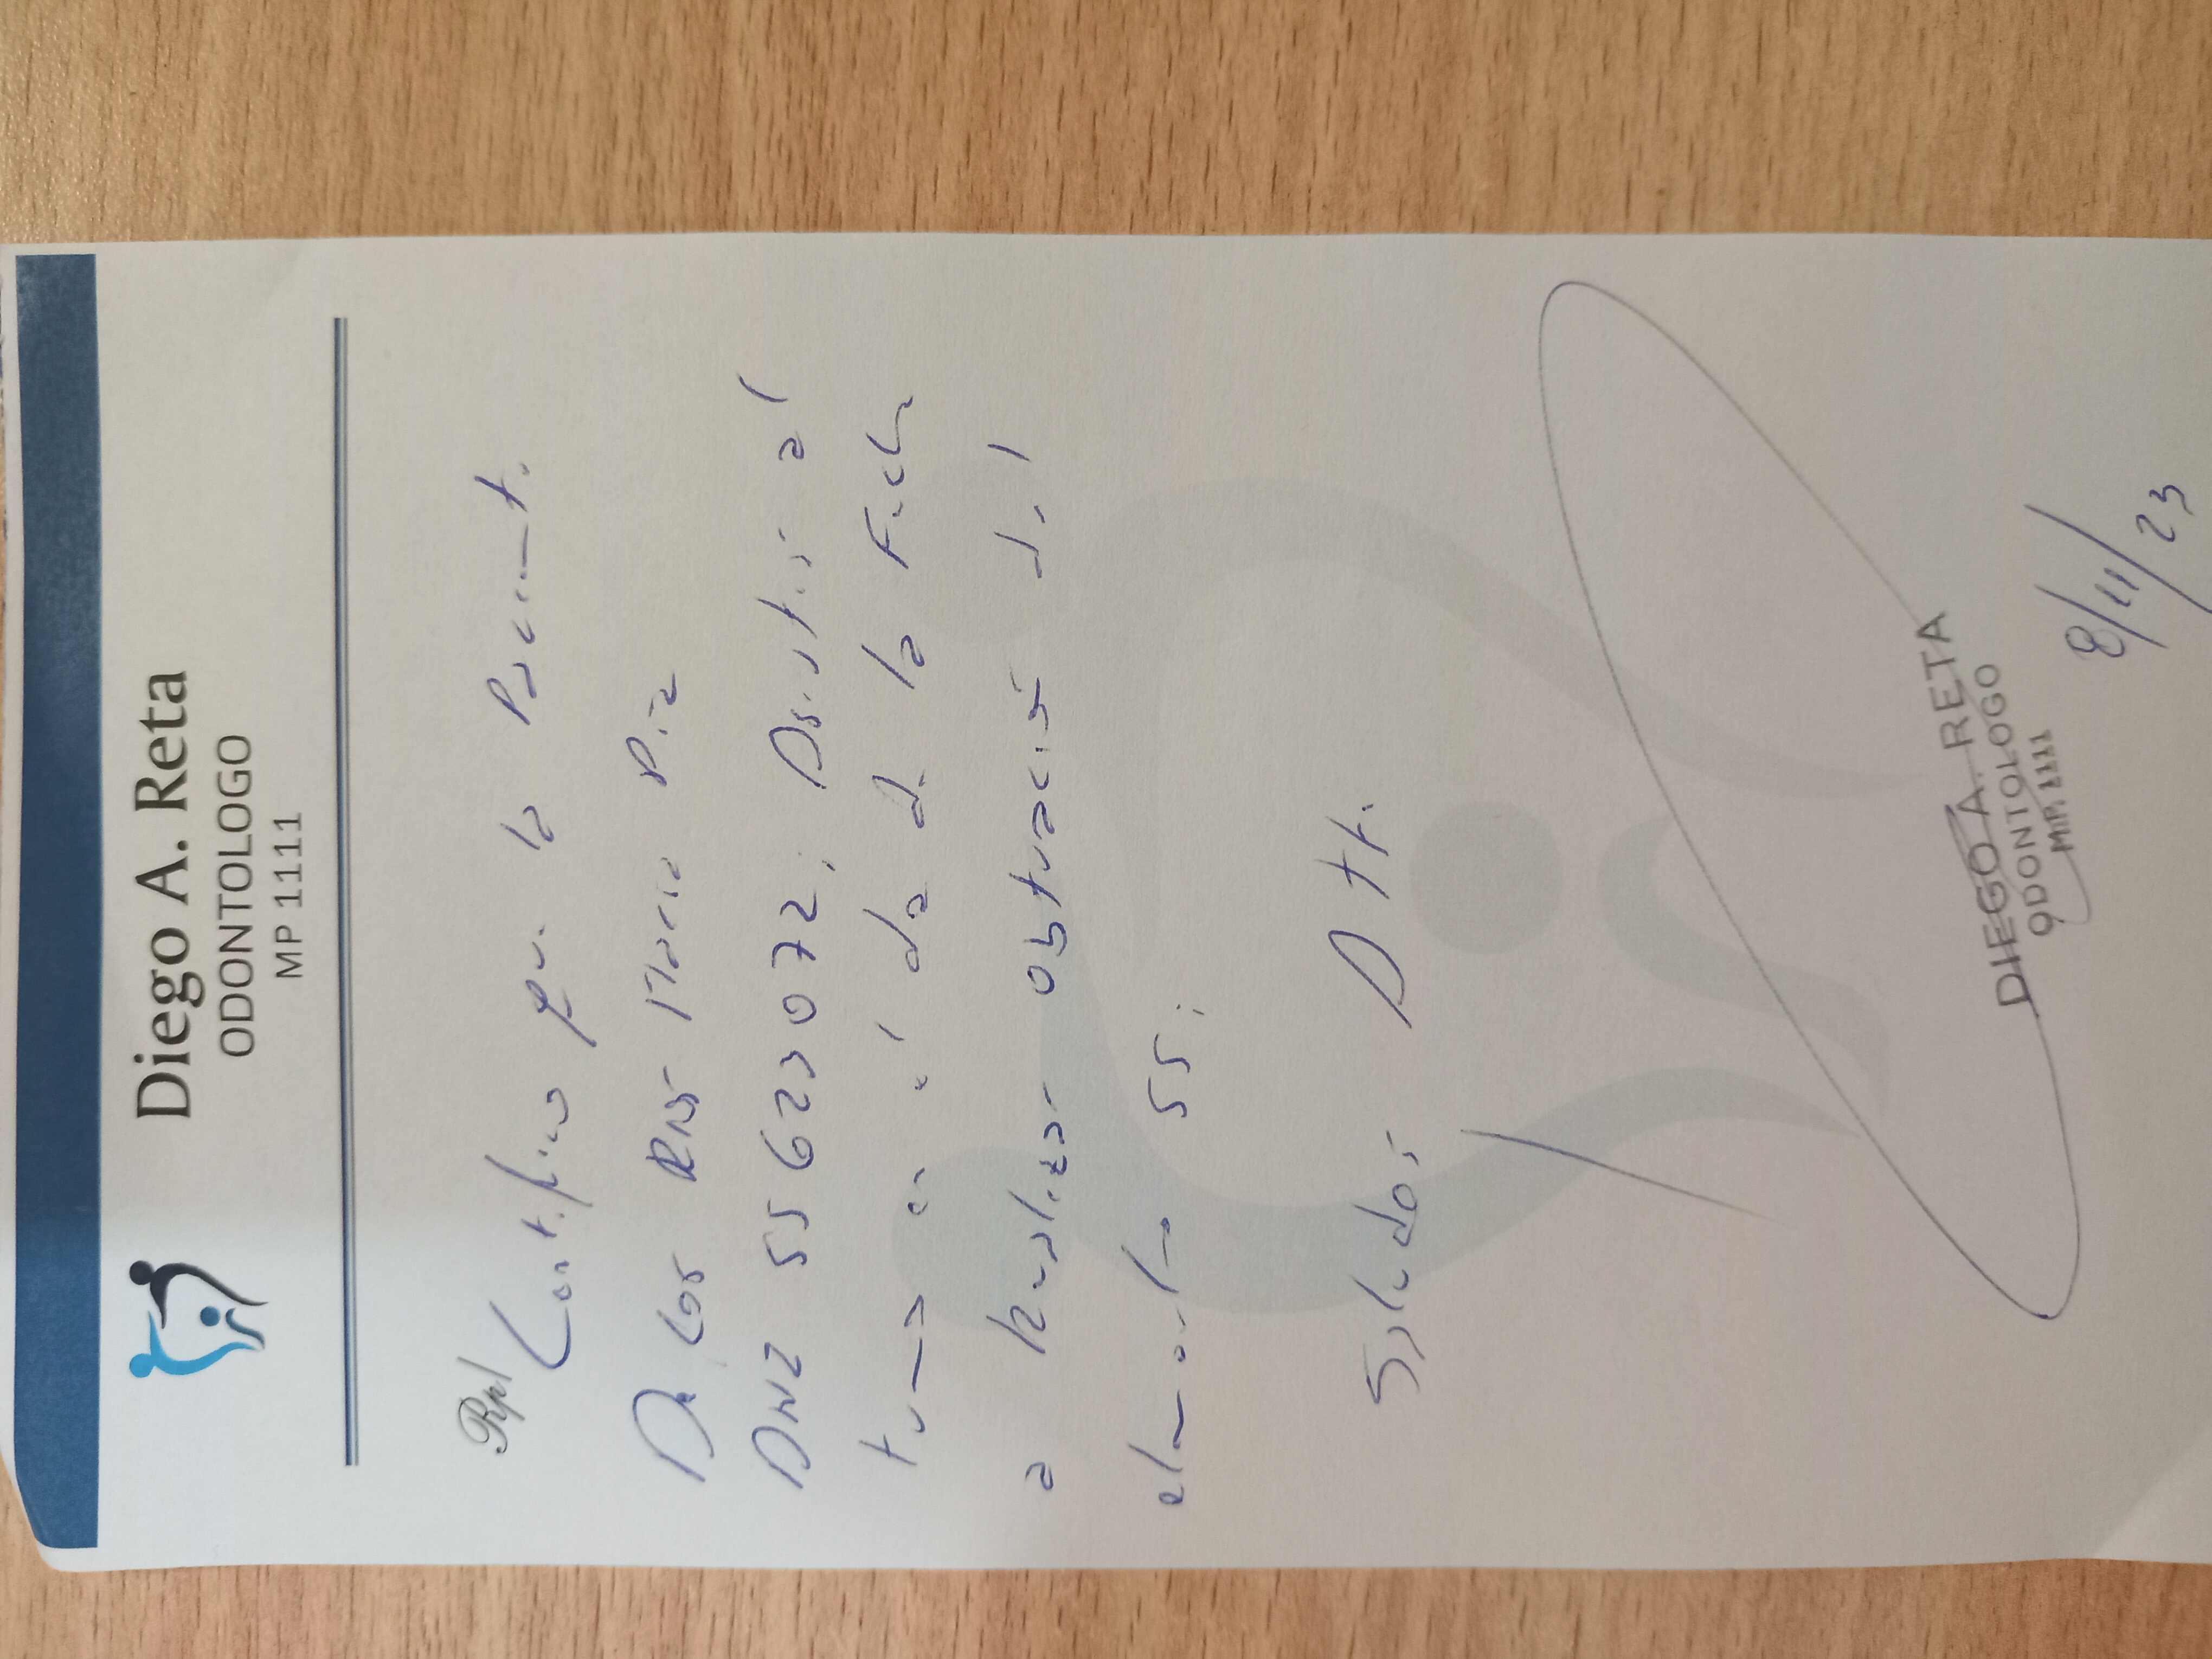 Diego A. Reta
ODONTOLOGO
MP 1111
Rp/
Certifico que la Paciente
De los Rios Maria Pia
DNI 55623072, Asistió al
turno en el dia de la Fecha
a Realizar obturación del
elemento 55:
Saludos Atte.
DIEGO A. RETA
ODONTOLOGO
MP. 1111
8/11/23